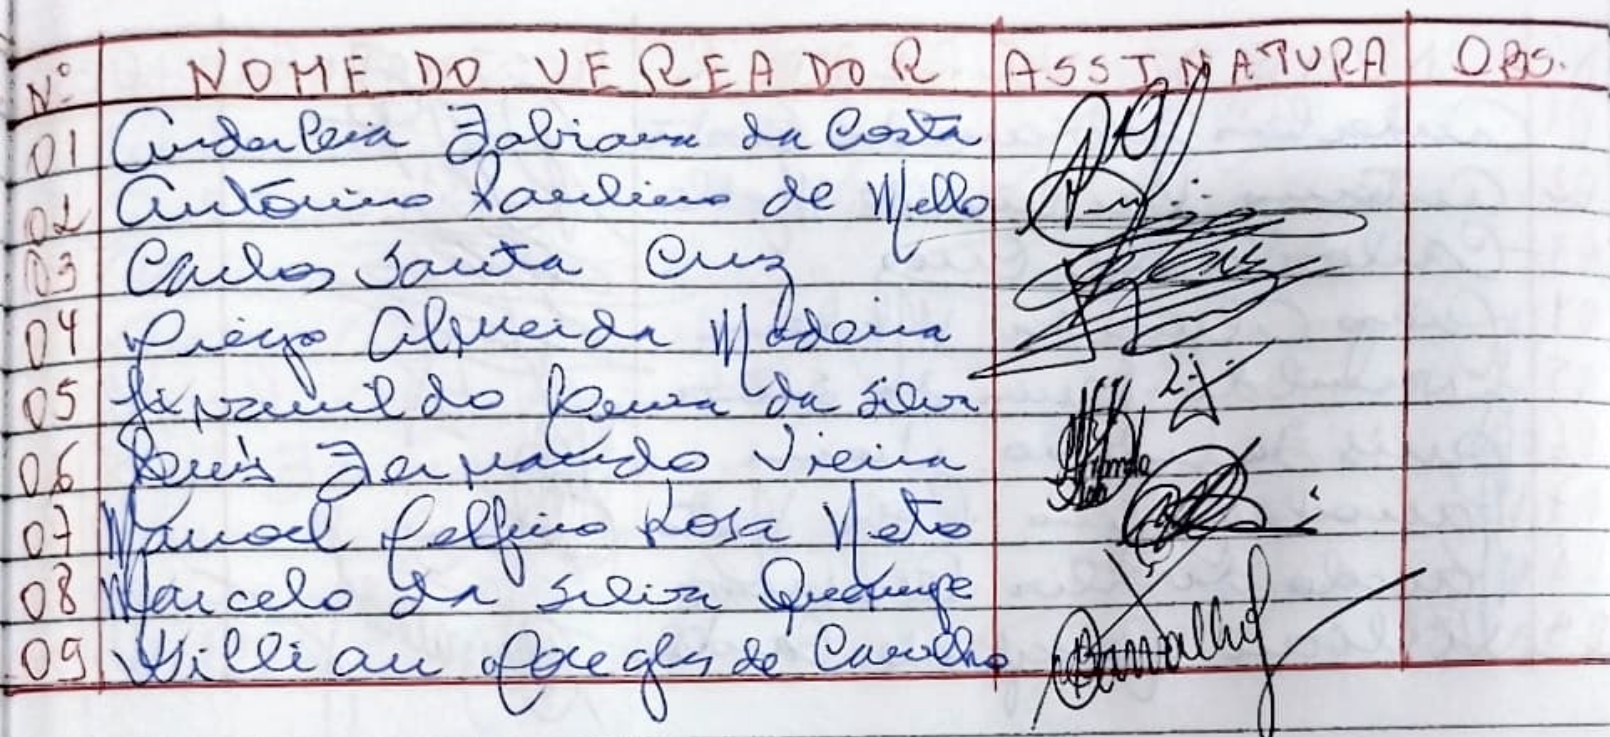 Nº NOME DO VEREADOR ASSINATURA OBS.
01 Anderleia Fabiana da Costa
02 Antônino Paulino de Mello
03 Carlos Santa Cruz
04 Diego Almeida Madeira
05 da Silva
06 Luís Fernando Vieira
07 Manoel Delfino Rosa Neto
08 Marcelo da Silva
09 Willian Douglas de Carvalho Carvalho